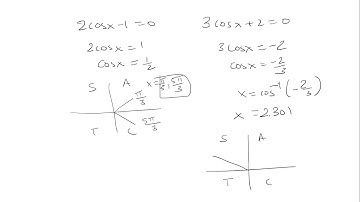 2cosx-1=0
2cosx=1
cosx=1/2
S A
x=π/3, 5π/3
π/3
T C
5π/3
3cosx+2=0
3cosx=-2
cosx=-2/3
x=cos⁻¹(-2/3)
x=2.301
S A
T C